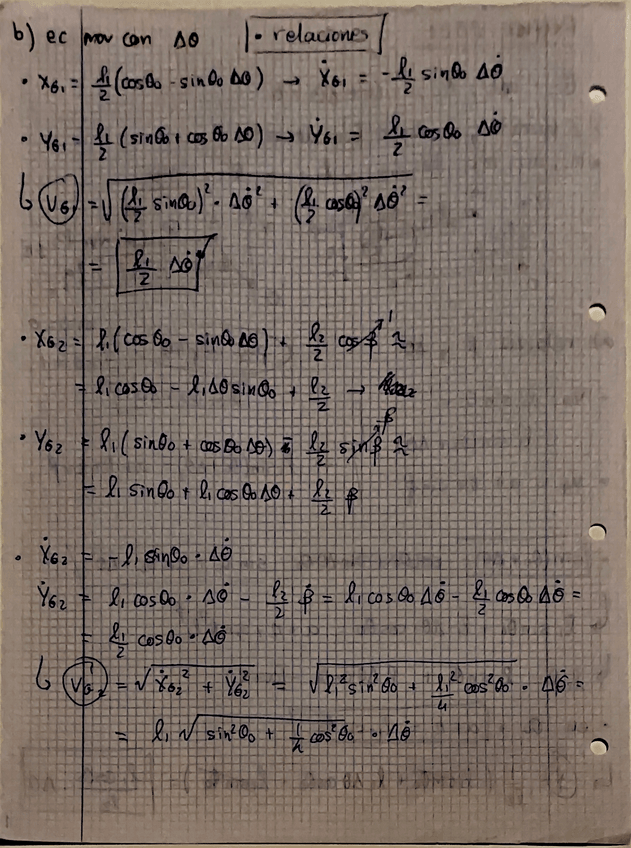 b) ec mov con Δθ |• relaciones|
• X_G1 = l₁/2 (cosθ₀ - sinθ₀ Δθ) → Ẋ_G1 = -l₁/2 sinθ₀ Δθ̇
• Y_G1 = l₁/2 (sinθ₀ + cosθ₀ Δθ) → Ẏ_G1 = l₁/2 cosθ₀ Δθ̇
↳ V_G1 = √((l₁/2 sinθ₀)² · Δθ̇² + (l₁/2 cosθ₀)² Δθ̇²) =
= l₁/2 Δθ̇
• X_G2 = l₁(cosθ₀ - sinθ₀ Δθ) + l₂/2 cosβ ↗1 ≈
= l₁cosθ₀ - l₁Δθsinθ₀ + l₂/2 →
• Y_G2 = l₁(sinθ₀ + cosθ₀ Δθ) l₂/2 sinβ ↗β ≈
= l₁ sinθ₀ + l₁cosθ₀Δθ + l₂/2 β
• Ẋ_G2 = -l₁sinθ₀ · Δθ̇
Ẏ_G2 = l₁cosθ₀ · Δθ̇ - l₂/2 β̇ = l₁cosθ₀Δθ̇ - l₁/2 cosθ₀Δθ̇ =
= l₁/2 cosθ₀ · Δθ̇
↳ V_G2 = √(Ẋ_G2² + Ẏ_G2²) = √(l₁²sin²θ₀ + l₁²/4 cos²θ₀) · Δθ̇ =
= l₁ √(sin²θ₀ + 1/4 cos²θ₀) · Δθ̇